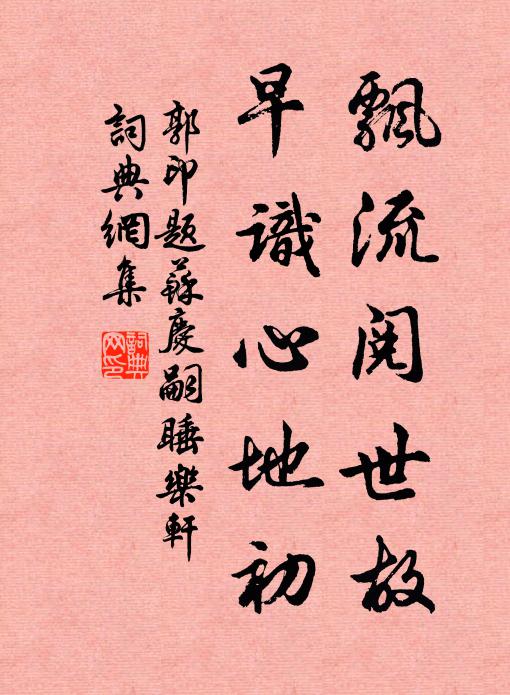 飄流閱世故
早識心地初
郭印題蘇慶嗣睡樂軒
詞典網集
詞典網印